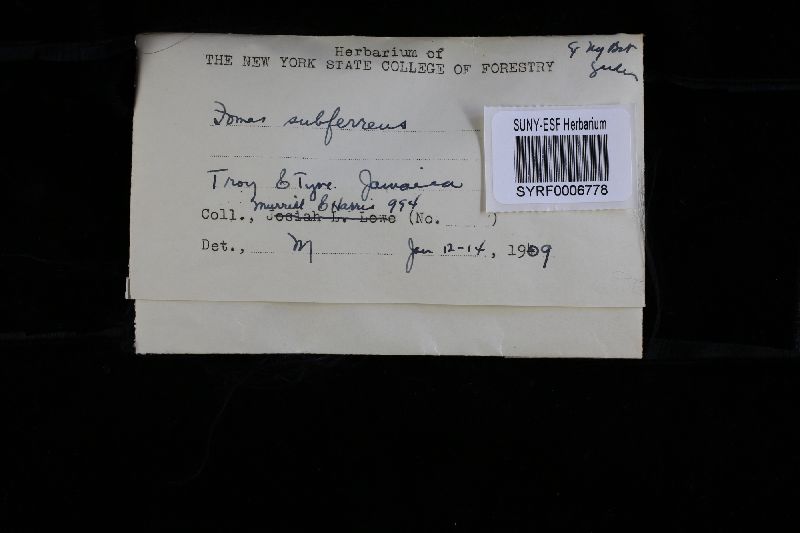 Herbarium of
THE NEW YORK STATE COLLEGE OF FORESTRY
Ny Bot
Garden
Fomes subferreus
SUNY-ESF Herbarium
SYRF0006778
Troy & Tyre Jamaica
Murrill & Harris 994
Coll., Josiah L. Lowe (No. )
Det., M Jan 12-14, 1909